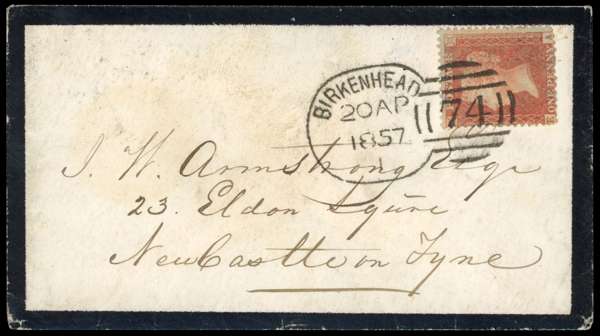 BIRKENHEAD
20 AP
1857
1
74
ONE PENNY
J. W. Armstrong Esqr
23. Eldon Square
NewCastle on Tyne